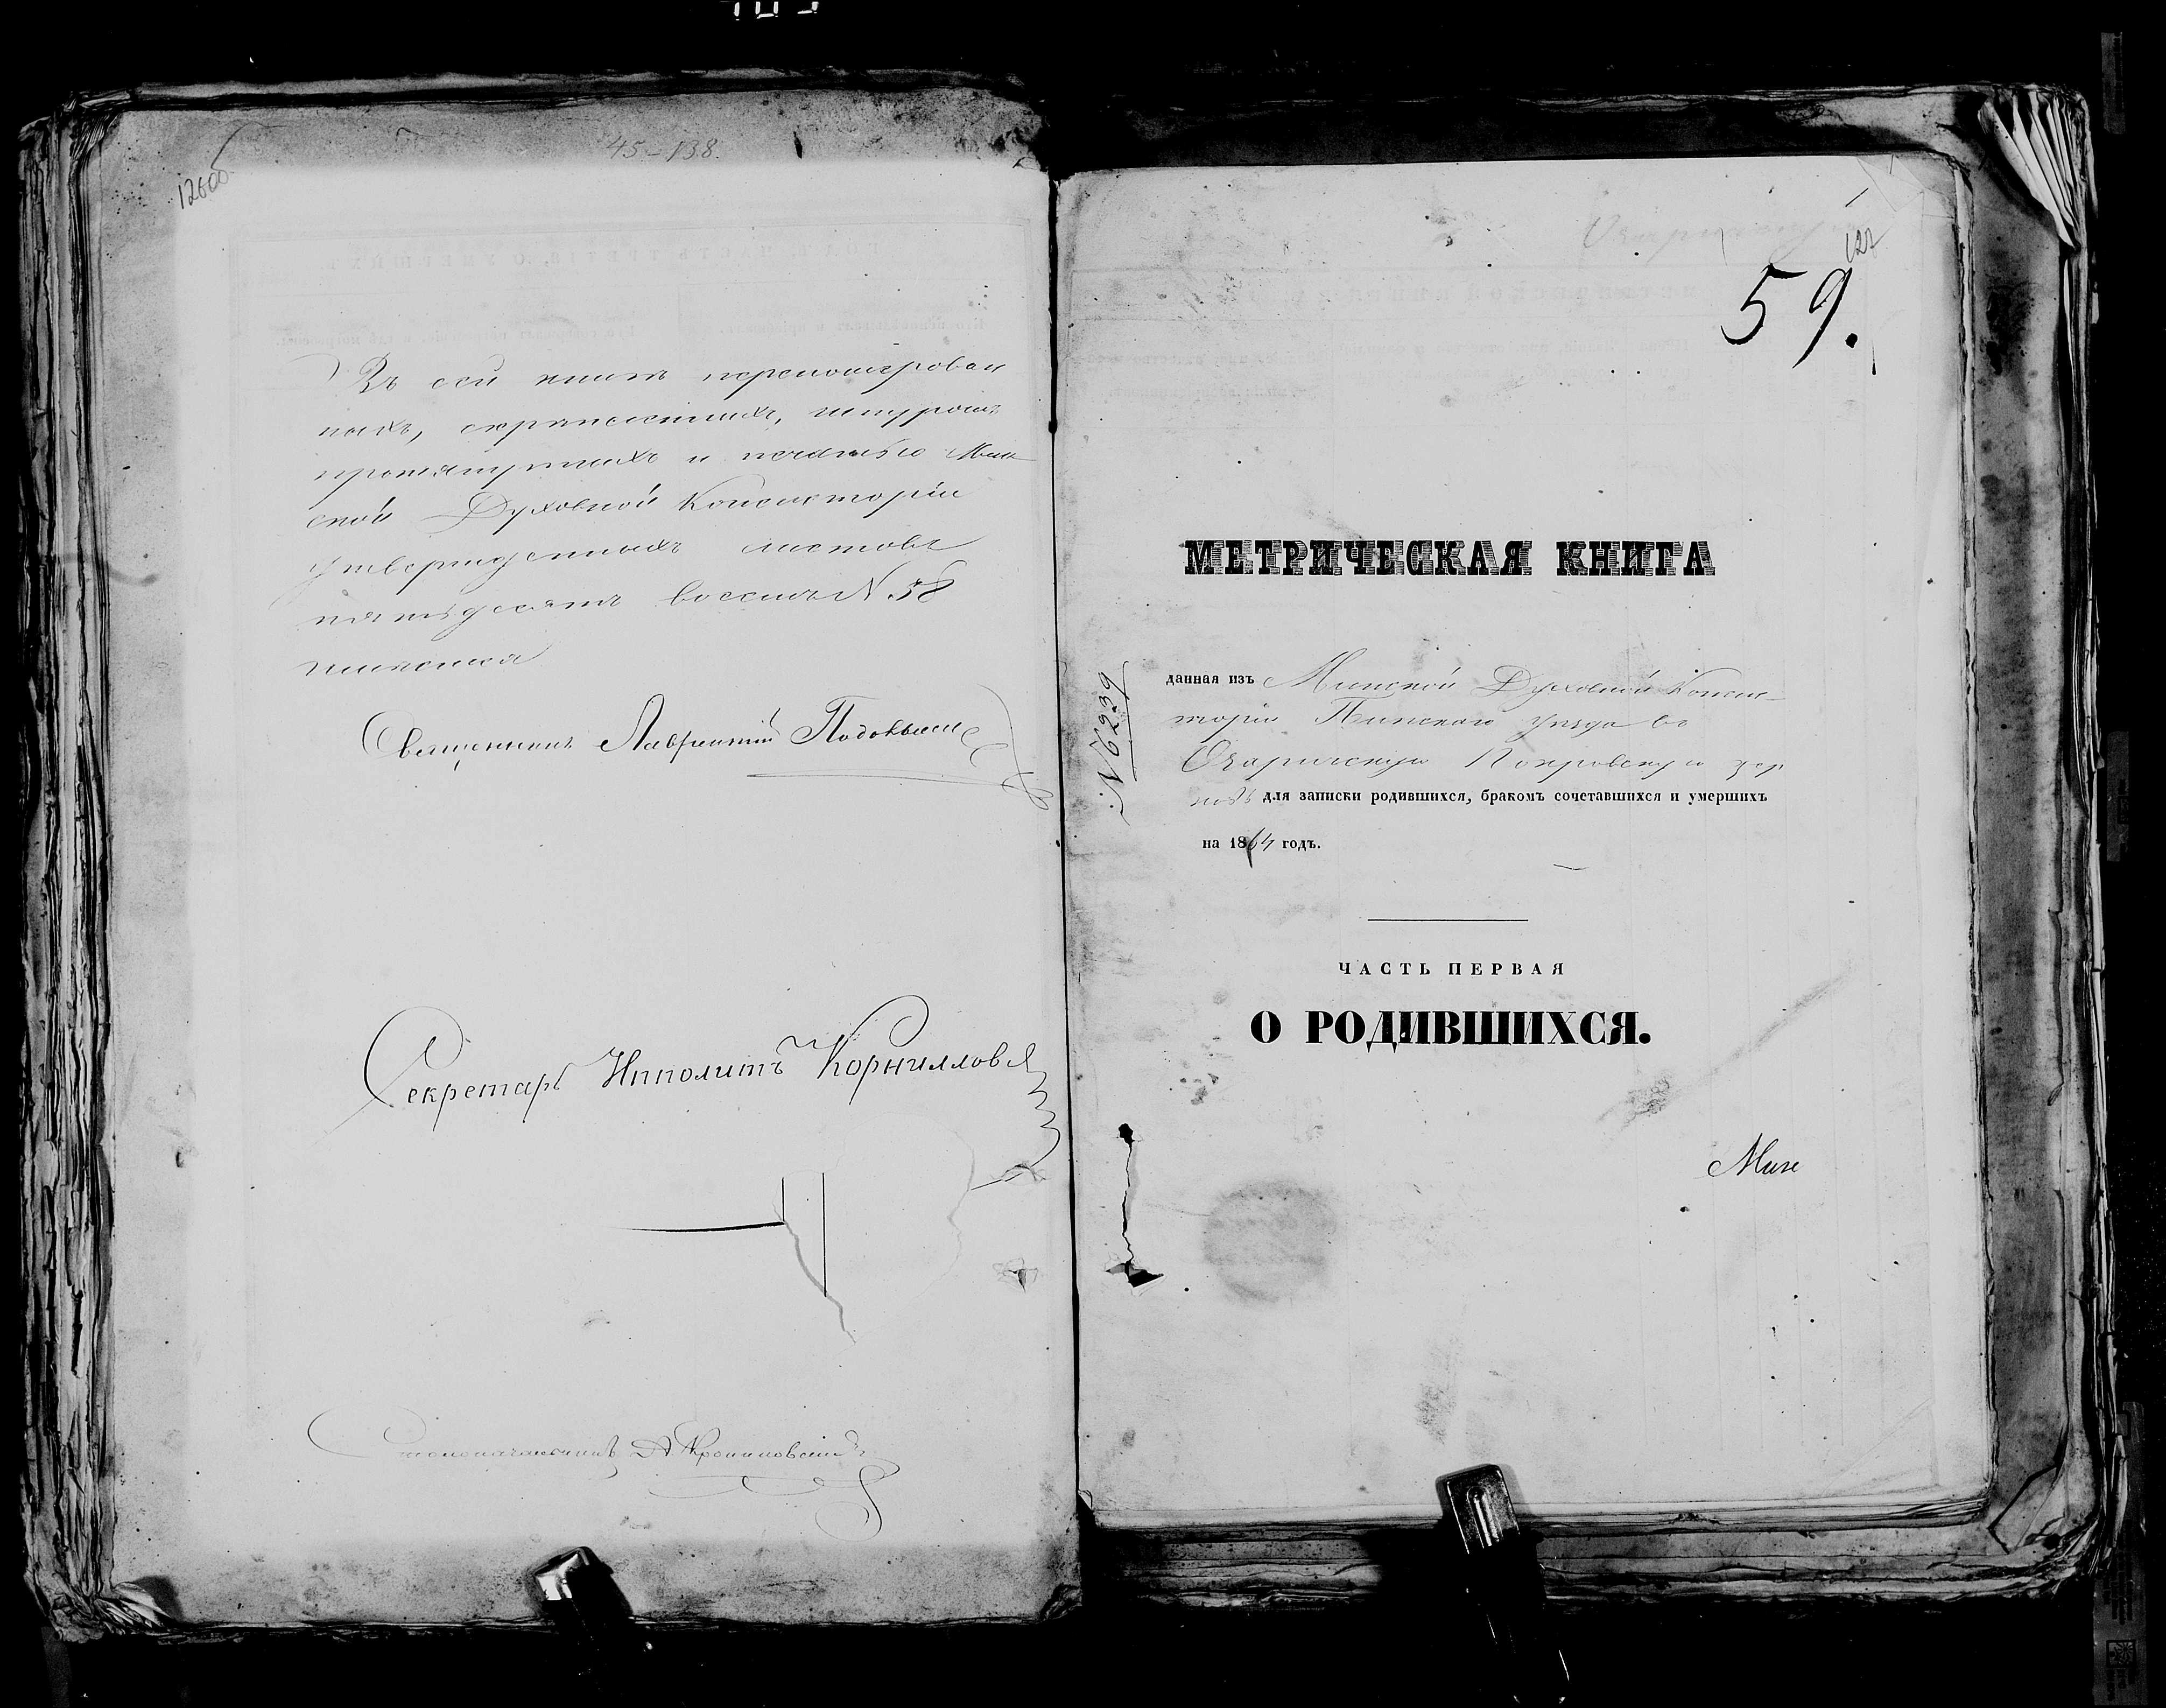 45–138.
126об
Въ сей книгѣ перенумерован
ныхъ, скрѣпленныхъ, шнуромъ
протянутыхъ и печатью Мин
ской Духовной Консисторіи
утвержденныхъ листовъ
пятьдесятъ восемь N 58
имѣется
Священникъ Лаврентій
Секретарь Ипполитъ Корнилловъ
Столоначальникъ
127
59.
МЕТРИЧЕСКАЯ КНИГА
N 6239
данная изъ Минской Духовной Консис-
торіи Пинскаго уѣзда въ
Охаричскую Покровскую цер
ковь для записки родившихся, бракомъ сочетавшихся и умершихъ
на 1864 годъ.
ЧАСТЬ ПЕРВАЯ
О РОДИВШИХСЯ.
Мин